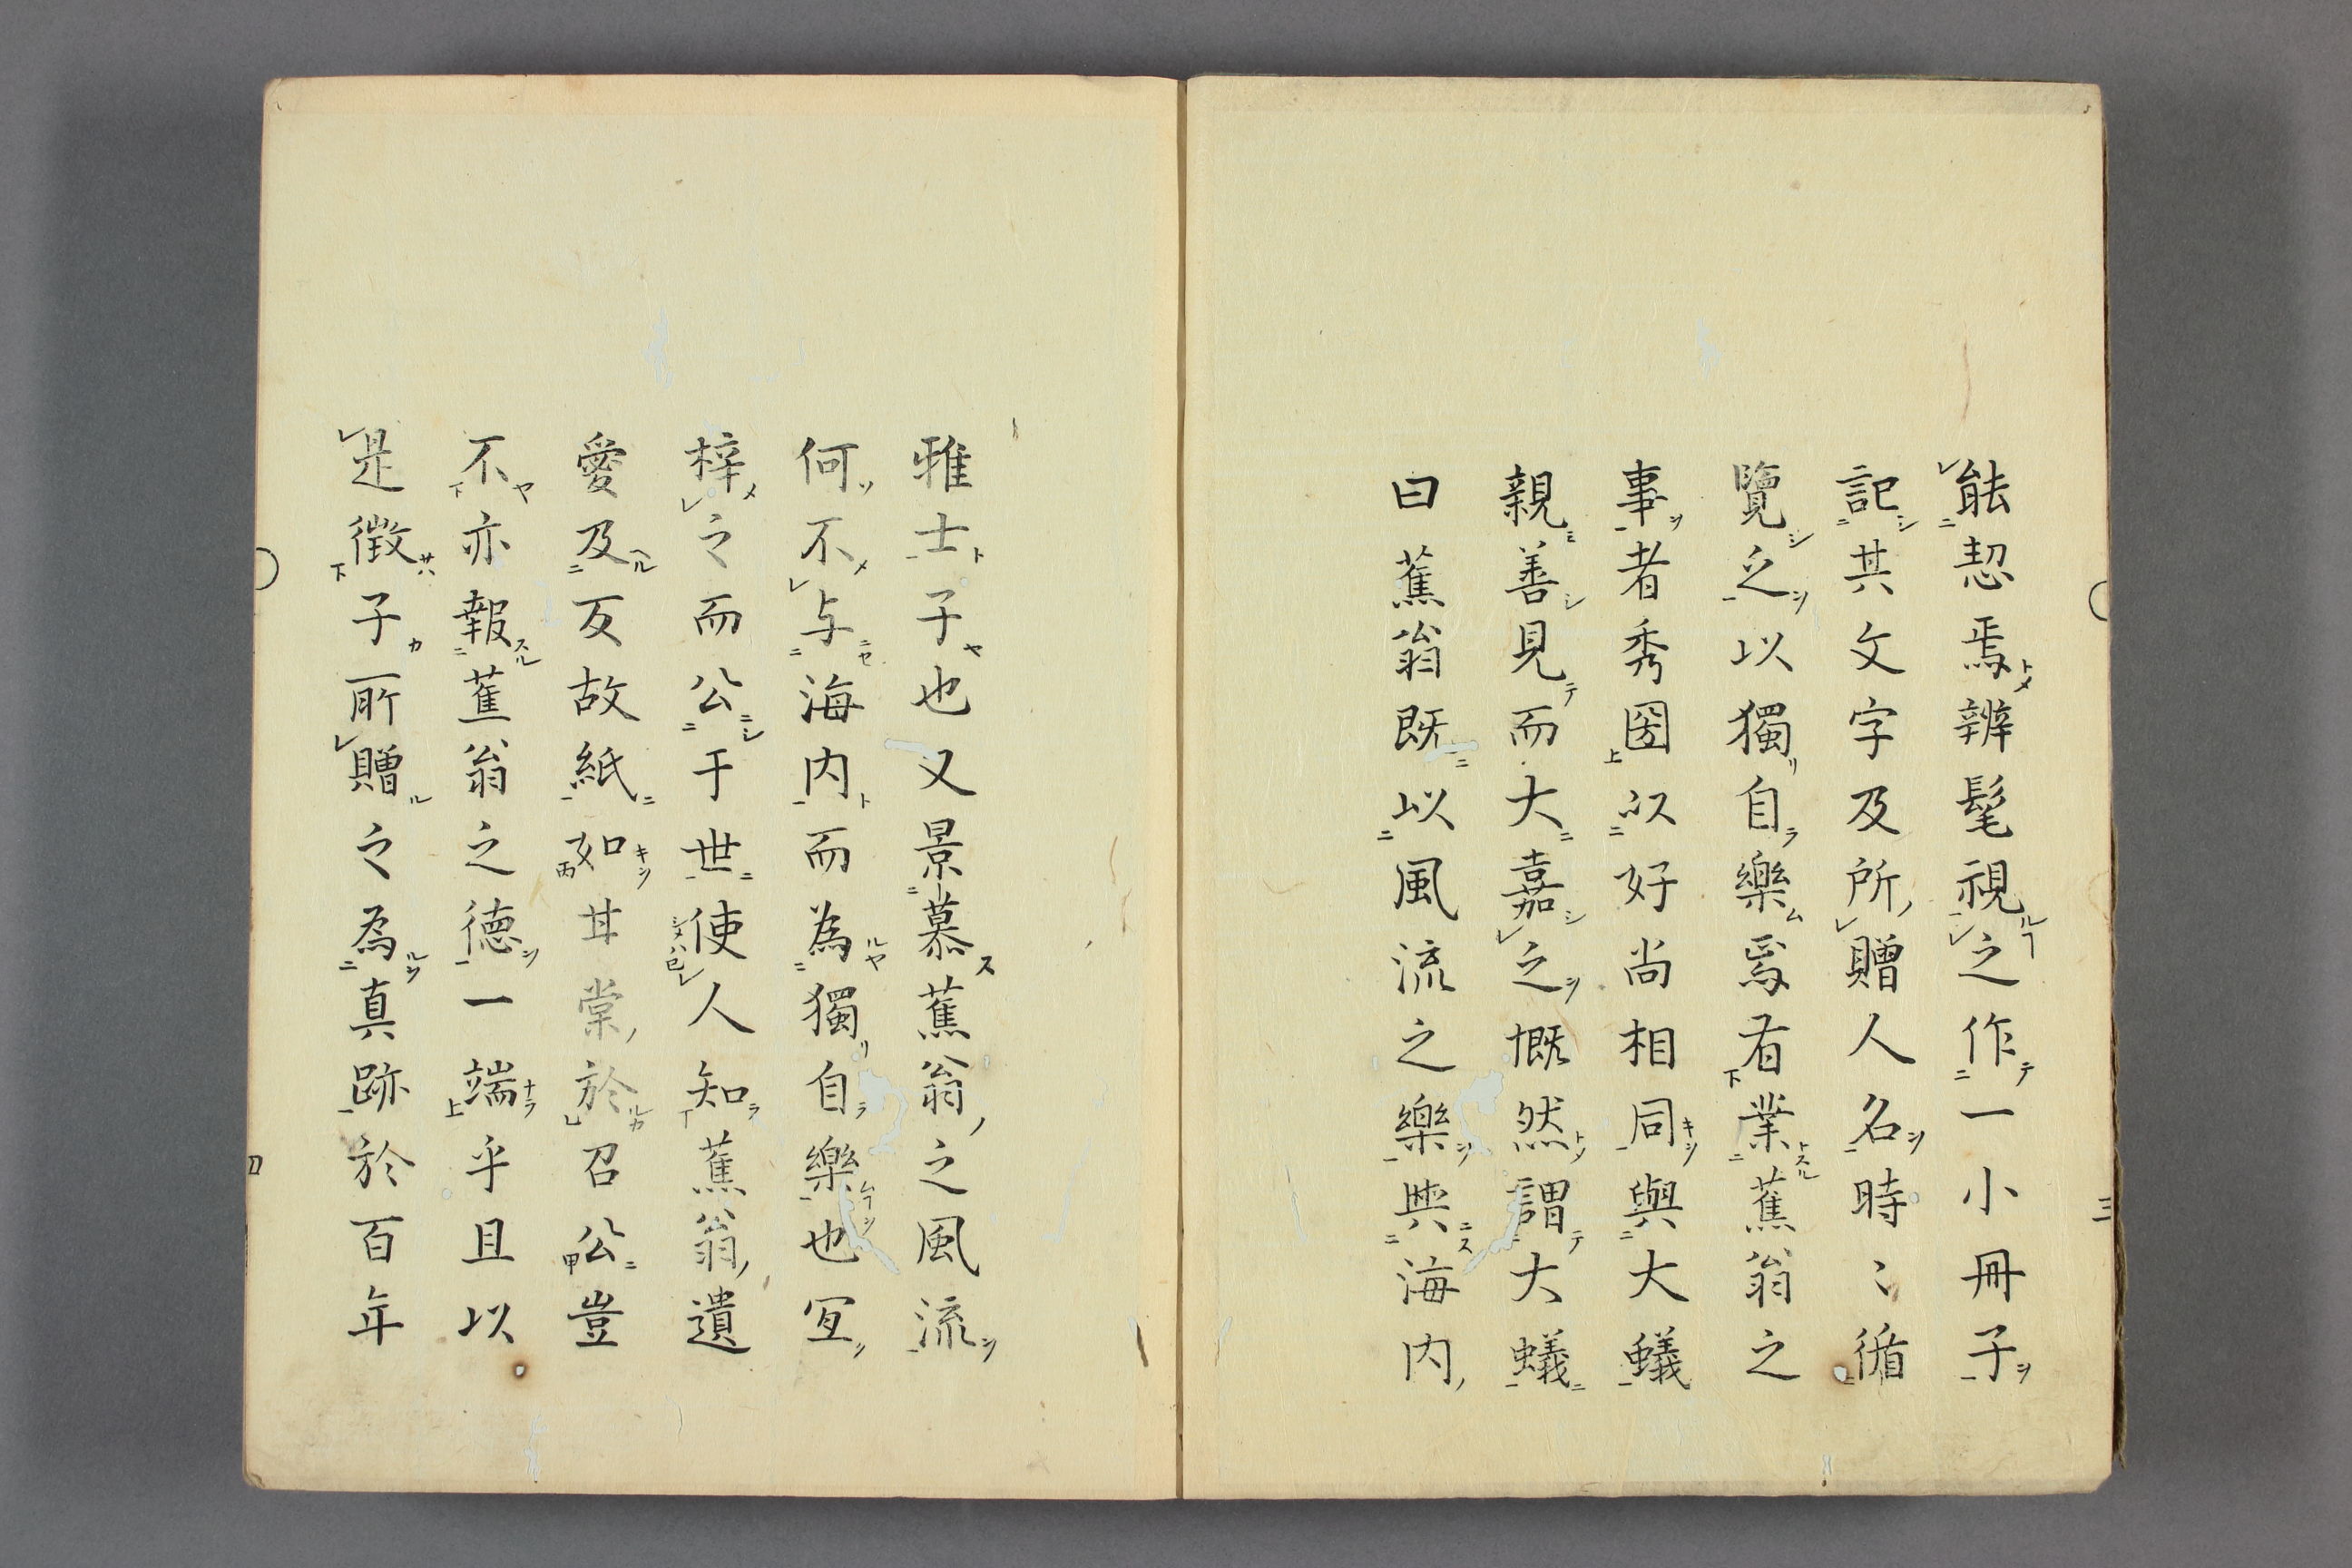 能恝焉辨髦視之作一小冊子
記其文字及所贈人名時〻循
覽之以獨自樂焉有業蕉翁之
事者秀圀以好尚相同與大蟻
親善見而大嘉之慨然謂大蟻
曰蕉翁既以風流之樂與海内
雅士子也又景慕蕉翁之風流
何不与海内而為獨自樂也宜
梓之而公于世使人知蕉翁遺
愛及反故紙如甘棠於召公豈
不亦報蕉翁之德一端乎且以
是徴子所贈之為真跡於百年
三